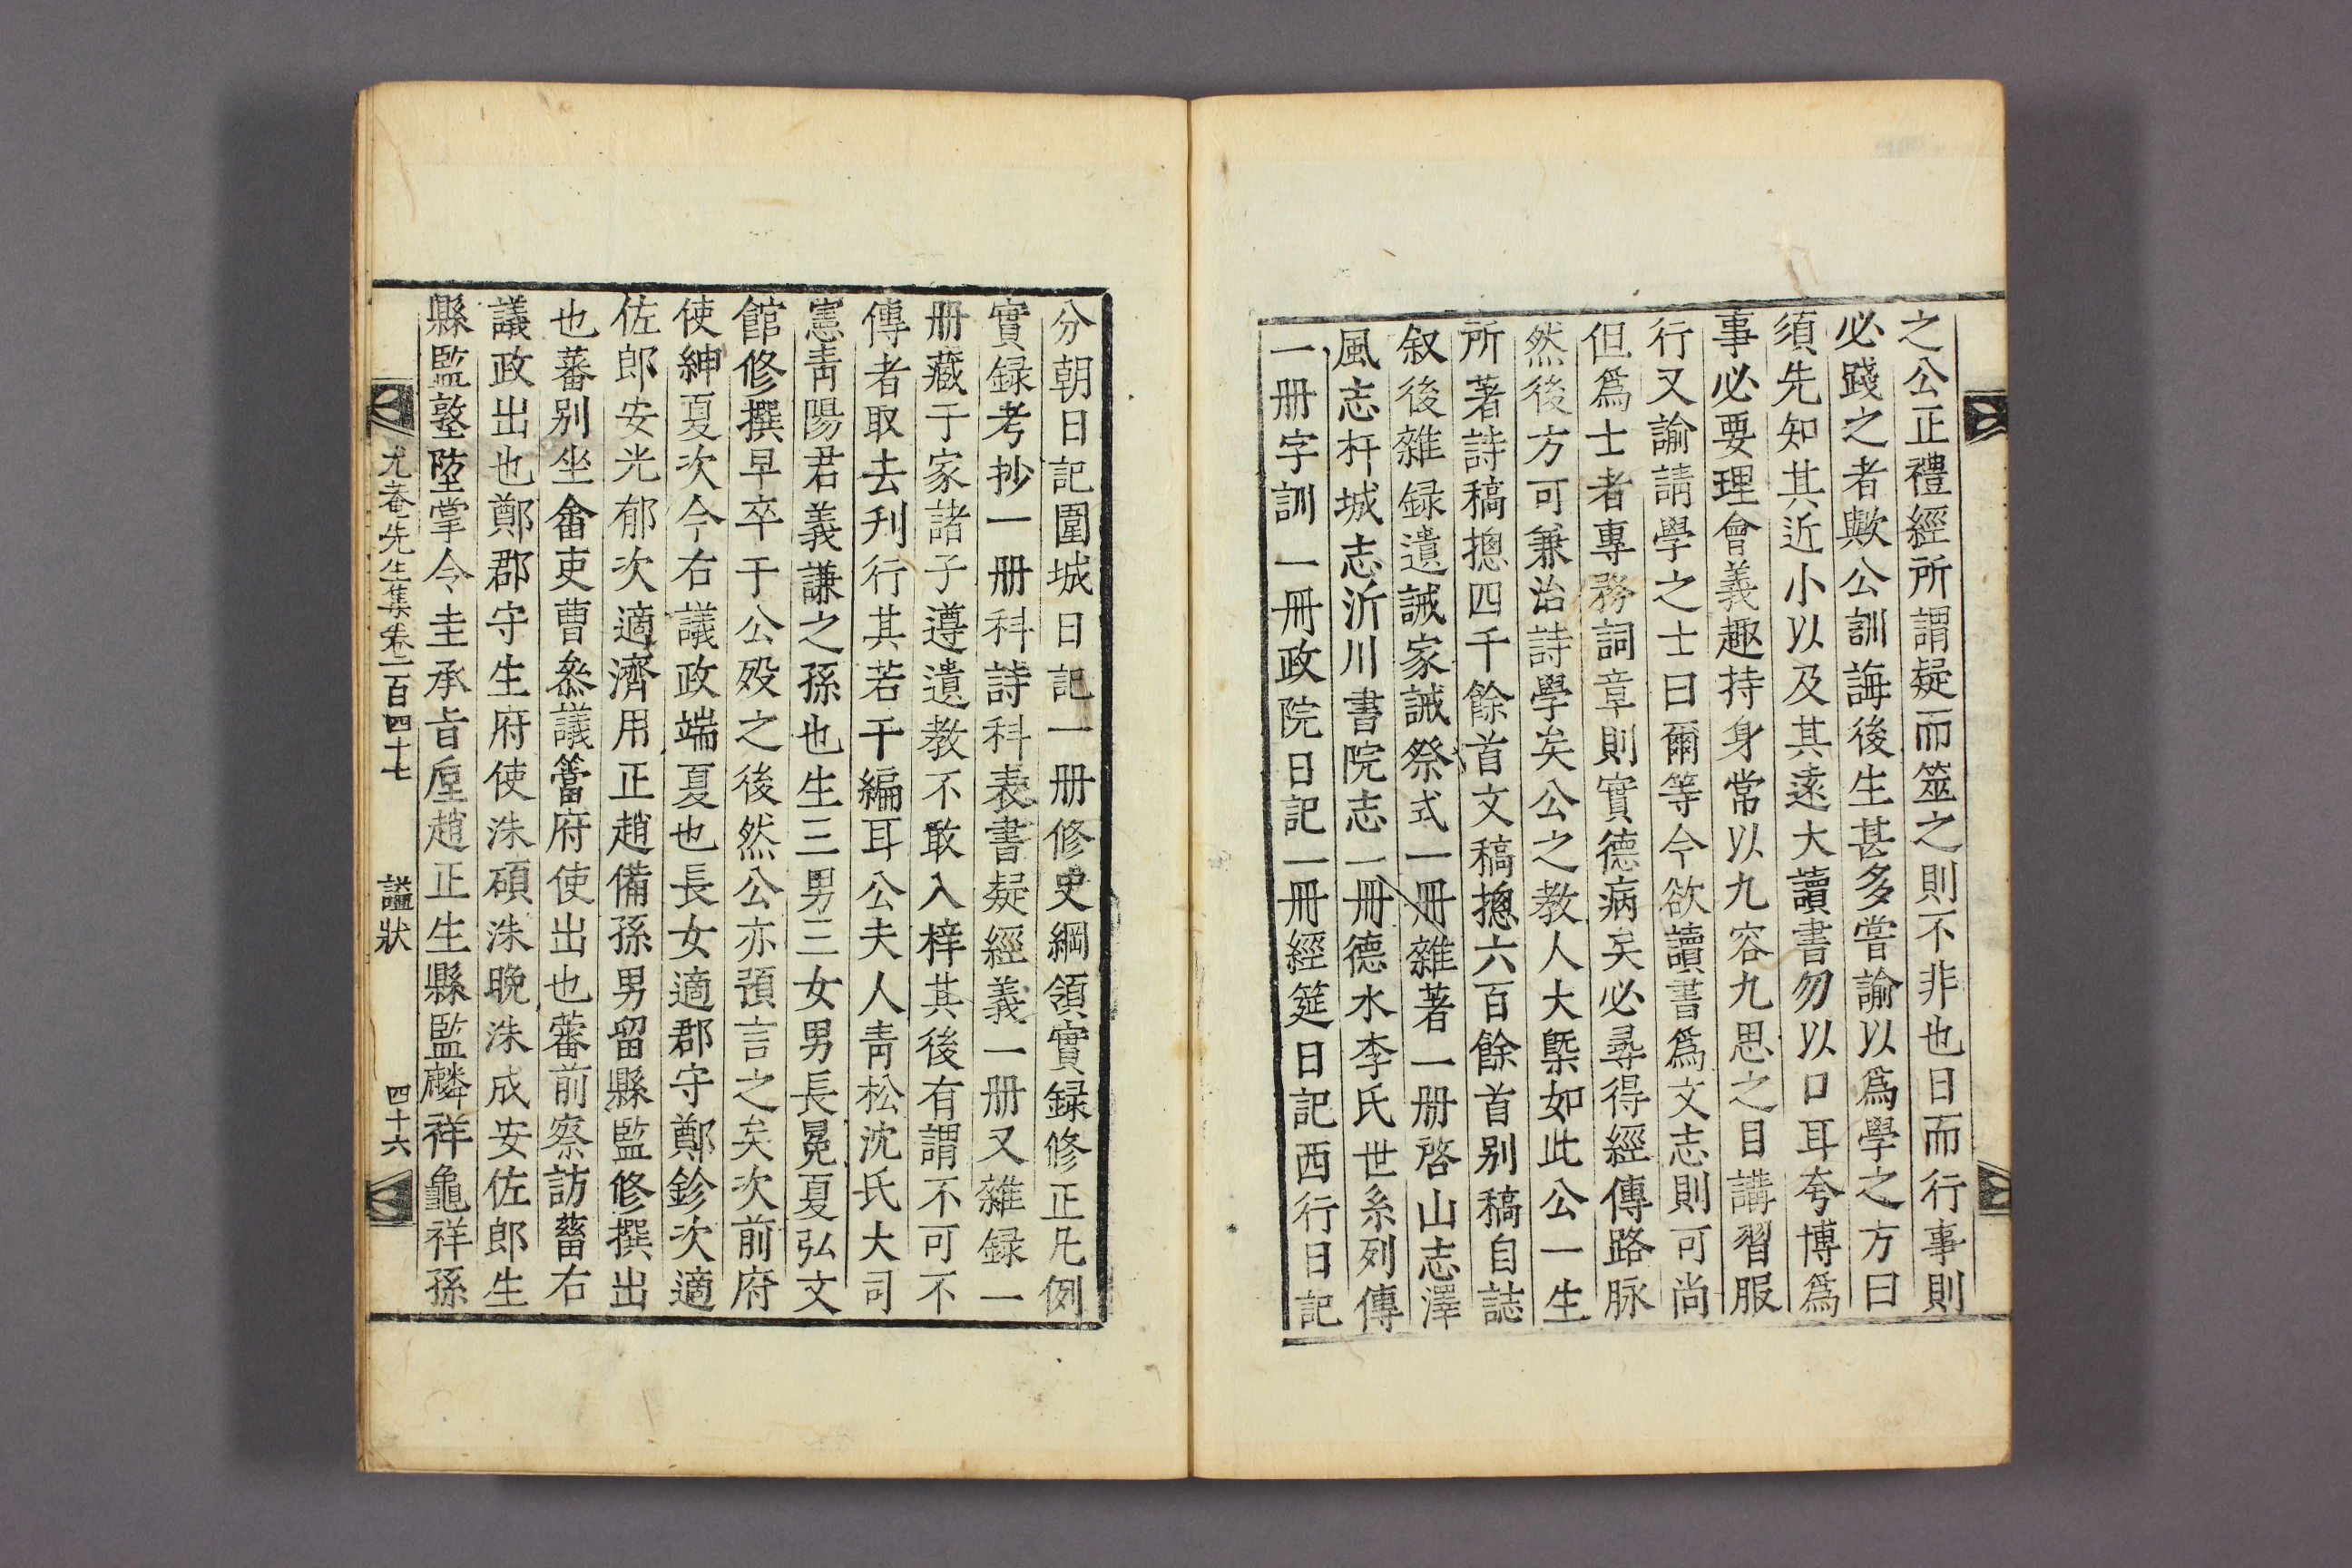 之公正禮經所謂疑而筮之則不非也日而行事則
必踐之者歟公訓誨後生甚多嘗諭以爲學之方曰
須先知其近小以及其遠大讀書勿以口耳夸博爲
事必要理會義趣持身常以九容九思之目講習服
行又諭請學之士曰爾等今欲讀書爲文志則可尚
但爲士者專務詞章則實德病矣必尋得經傳路脉
然後方可兼治詩學矣公之教人大槩如此公一生
所著詩稿摠四千餘首文稿摠六百餘首別稿自誌
叙後雜録遺誡家誡祭式一冊雜著一册啓山志澤
風志杆城志沂川書院志一冊德水李氏世系列傳
一册字訓一冊政院日記一冊經筵日記西行日記
分朝日記圍城日記一册修史綱領實録修正凡例
實録考抄一册科詩科表書疑經義一册又雜録一
册藏于家諸子遵遺教不敢入梓其後有謂不可不
傳者取去刋行其若干編耳公夫人靑松沈氏大司
憲靑陽君義謙之孫也生三男三女男長冕夏弘文
館修撰早卒于公歿之後然公亦預言之矣次前府
使紳夏次今右議政端夏也長女適郡守鄭鉁次適
佐郎安光郁次適濟用正趙備孫男留縣監修撰出
也蕃别坐畬吏曹叅議簹府使出也蕃前察訪畜右
議政出也鄭郡守生府使洙碩洙晚洙成安佐郎生
縣監塾墍掌令圭承旨垕趙正生縣監麟祥龜祥孫
尤菴先生集卷二百四十七　諡狀　四十六